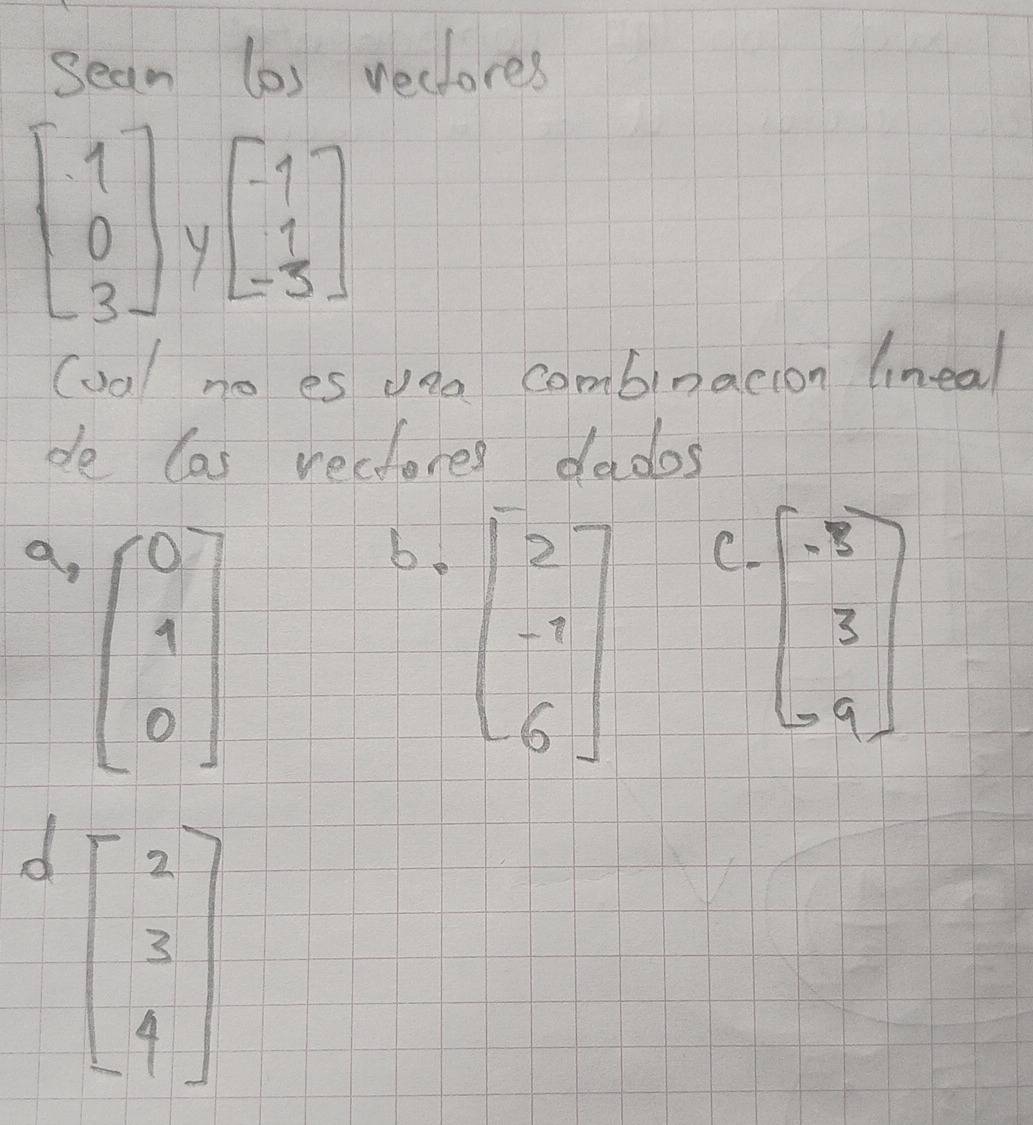 Sean los vectores
[1 0 3] y [-1 1 -3]
Cual no es una combinacion lineal
de las vectores dados
a, [0 1 0] b. [2 -1 6] c. [-3 3 -9]
d [2 3 4]